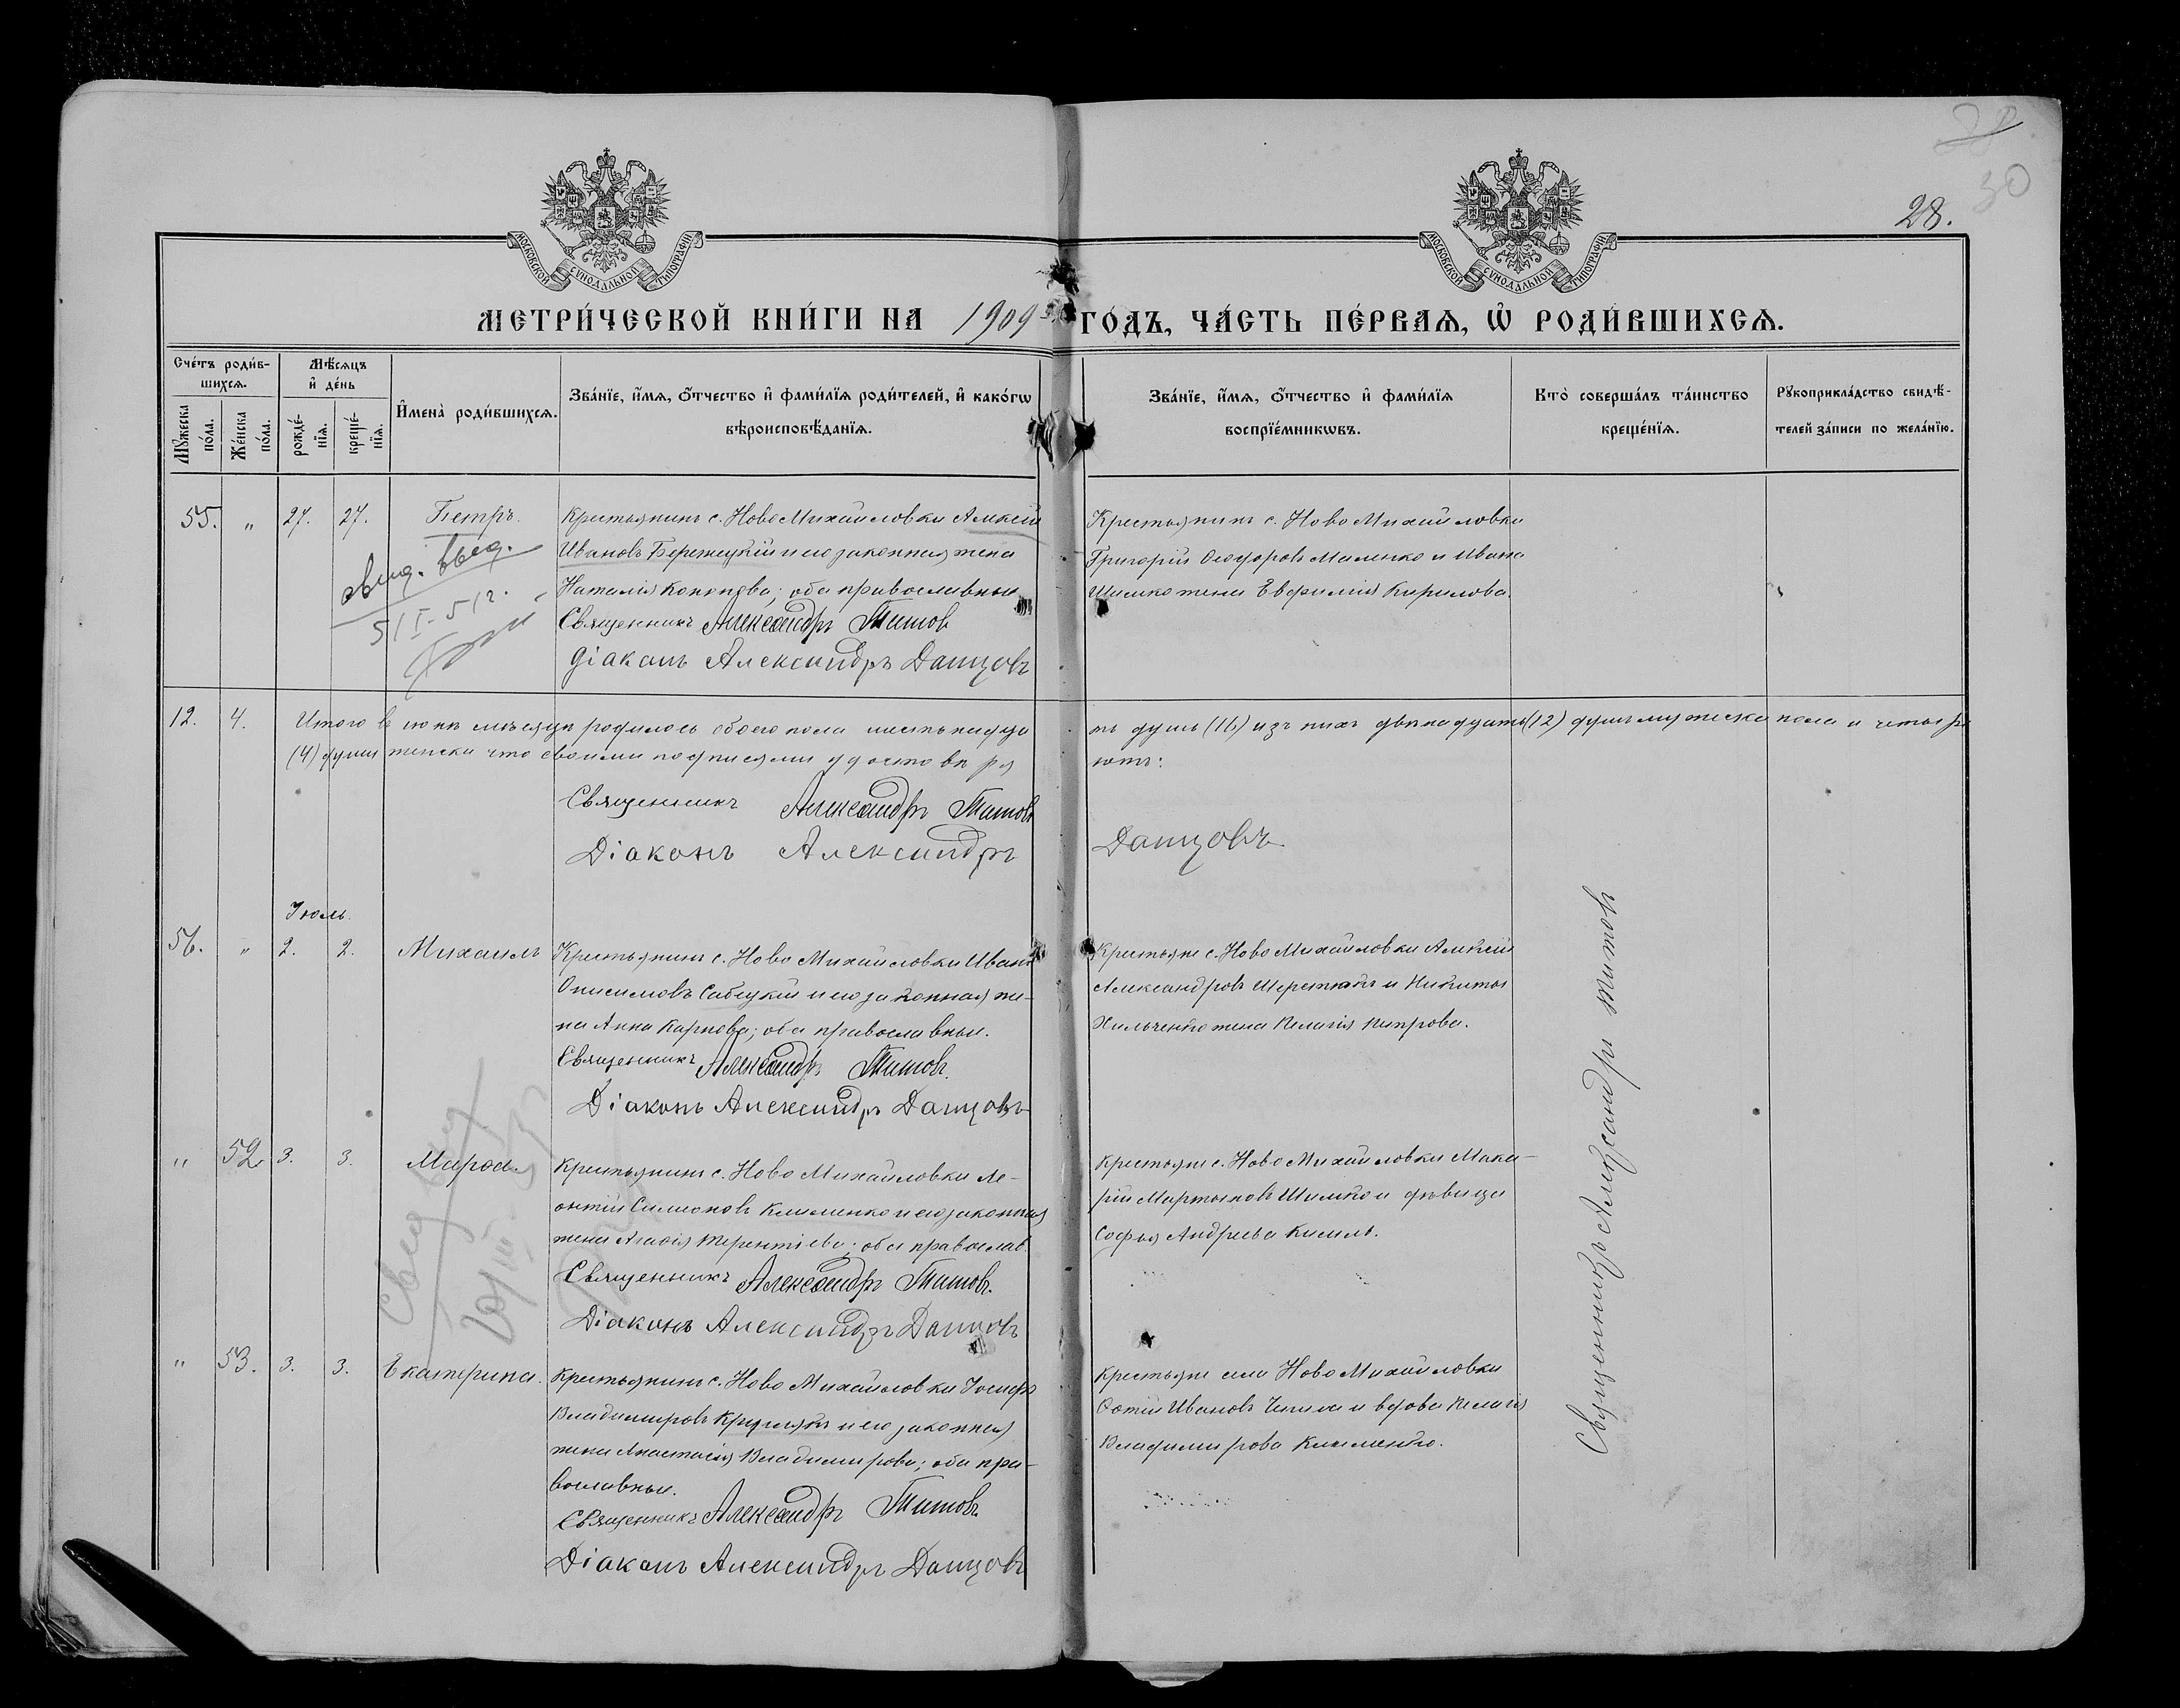 28.
30
МОСКОВСКОЙ СѴНОДАЛЬНОЙ ТИПОГРАФІИ
МОСКОВСКОЙ СѴНОДАЛЬНОЙ ТИПОГРАФІИ
МЕТРИ́ЧЕСКОЙ КНИ́ГИ НА 1909 ГО́ДЪ, ЧА́СТЬ ПЕ́РВАѦ, Ѡ҆ РОДИ́ВШИХСѦ.
Сче́тъ роди́в-
шихсѧ.
Мꙋ́жеска пола.
Же́нска по́ла.
Мѣ́сѧцъ
и҆ де́нь
рожде́-
нїѧ.
креще́-
нїѧ.
И҆мена̀ роди́вшихсѧ.
Зва́нїе, и҆́мѧ, ѻ҆́тчество и҆ фами́лїѧ роди́телей, и҆ како́гѡ
вѣроисповѣ́данїѧ.
Зва́нїе, и҆́мѧ, ѻ҆́тчество и҆ фами́лїѧ
воспрїе́мникѡвъ.
Кто̀ соверша́лъ та́инство
креще́нїѧ.
Рꙋкоприкла́дство свидѣ́-
телей за́писи по жела́нїю.
55. " 27. 27. Петръ.
Крестьянинъ с. Ново Михайловки Алексѣй
Ивановъ Бережецкій и его законная жена
Наталія Кононова; оба православные
Священникъ Александръ Титов
Діаконъ Александръ Данцовъ
свид. выд.
Крестьянинъ с. Ново Михайловки
Григорій Ѳеодоровъ Маленко и Ивана
Шимко жена Евфимія Кирилова.
12. 4. Итого въ іюнѣ мѣсяцѣ родилось обоего пола шестьнадца
ть душъ (16) изъ нихъ двѣнадцать (12) душъ мужеска пола и четыре
(4) души женска что своими подписями удостовѣря
ютъ:
Священникъ Александръ Титовъ
Діаконъ Александръ Данцовъ.
Іюль.
56. " 2. 2. Михаилъ
Крестьянинъ с. Ново Михайловки Иванъ
Онисимовъ Сабецкій и его законная же-
на Анна Карпова; оба православные.
Священникъ Александръ Титовъ.
Діаконъ Александръ Данцовъ
Крестьяне с. Ново Михайловки Алексѣй
Александровъ Шерстюкъ и Никиты
Хильченко жена Пелагія Петрова.
" 52. 3. 3. Марѳа.
Крестьянинъ с. Ново Михайловки Ле-
онтій Симоновъ Клименко и его законная
жена Агаѳія Терентіева; оба православ.
Священникъ Александръ Титовъ.
Діаконъ Александръ Данцовъ
Крестьяне с. Ново Михайловки Мака-
рій Мартыновъ Шимко и дѣвица
Софья Андреева Кисиль.
" 53. 3. 3. Екатерина.
Крестьянинъ с. Ново Михайловки Іосифъ
Владимировъ Круглякъ и его законная
жена Анастасія Владимирова; оба пра-
вославные.
Священникъ Александръ Титовъ.
Діаконъ Александръ Данцовъ
Крестьяне села Ново Михайловки
Фотій Ивановъ Чепига и вдова Пелагія
Владимирова Клименко.
Священникъ Александръ Титовъ